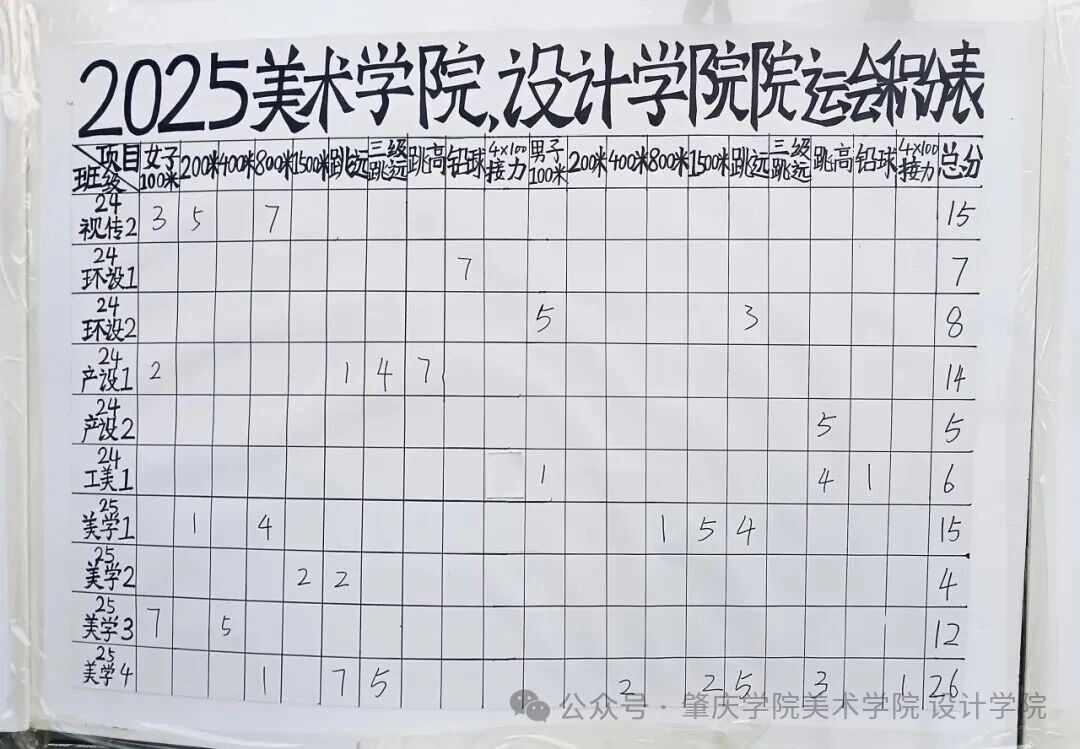 2025美术学院,设计学院院运会积分表
项目 班级 女子100米 200米 400米 800米 1500米 跳远 三级跳远 跳高 铅球 4×100接力 男子100米 200米 400米 800米 1500米 跳远 三级跳远 跳高 铅球 4×100接力 总分
24视传2 3 5 7 15
24环设1 7 7
24环设2 5 3 8
24产设1 2 1 4 7 14
24产设2 5 5
24工美1 1 4 1 6
25美学1 1 4 1 5 4 15
25美学2 2 2 4
25美学3 7 5 12
25美学4 1 7 5 2 2 5 3 1 26
公众号·肇庆学院美术学院 设计学院